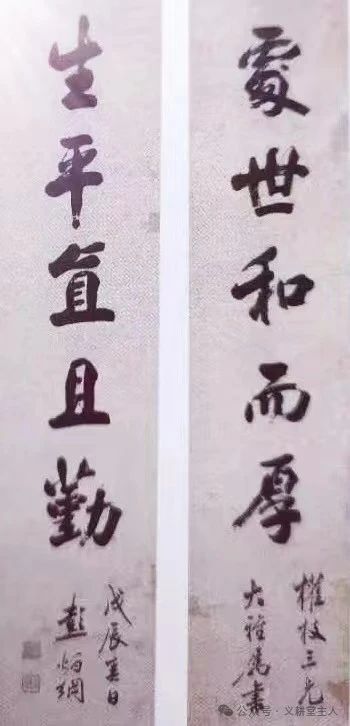 處世和而厚
權枝三兄
大雅屬書
生平直且勤
戊辰夏日
彭炳綱
公众号 · 义耕堂主人